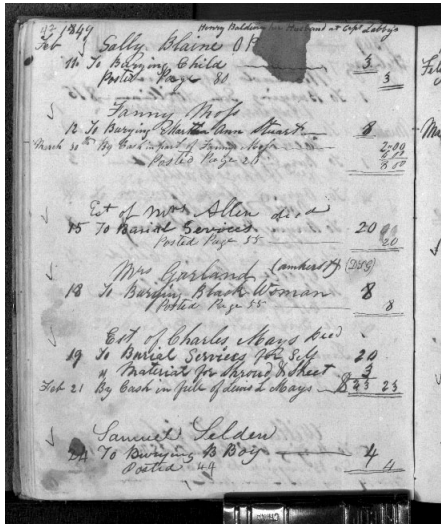 1849 Henry Baldwin her Husband at Capt Labby's
Feb Sally Blaine
To Burying Child 3
Posted Page 80 3
Fanny Moss
12 To Burying Martha Ann Stuart 8
March By Cash in part of Fanny Moss 200
Posted Page 28 8 00
Est of Mrs Allen died
15 To Burial Services 20 00
Posted Page 55 20
Mrs Garland (amherst) (DIG)
18 To Buryin Black Woman 8
Posted Page 55 8
Est. of Charles Mays Died
19 To Burial Services for Self 20
" Material for Shroud & Sheet 3
Feb 21 By Cash in full of Lewis L Mays $23 23
Samuel Selden
24 To Burying B Boy 4
Posted 44 4